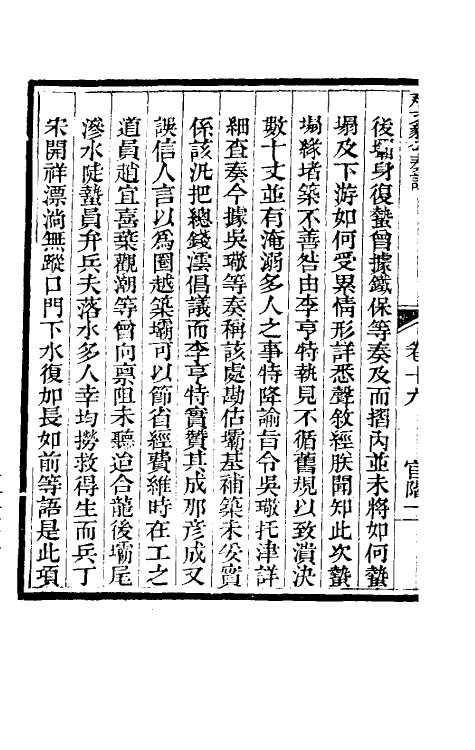 卷十九
官階二
後壩身復蟄曾據鐵保等奏及而摺內並未將如何蟄
塌及下游如何受累情形詳悉聲敘經朕開知此次蟄
塌緣堵築不善咎由李亨特執見不循舊規以致潰決
數十丈並有淹溺多人之事特降諭旨令吳璥托津詳
細查奏今據吳璥等奏稱該處勘估壩基補築未妥實
係該汛把總錢澐倡議而李亨特實贊其成那彥成又
誤信人言以為圈越築壩可以節省經費維時在工之
道員趙宜喜葉觀潮等曾向稟阻未聽迨合龍後壩尾
滲水陡蟄員弁兵夫落水多人幸均撈救得生而兵丁
宋開祥漂淌無蹤口門下水復加長如前等語是此項